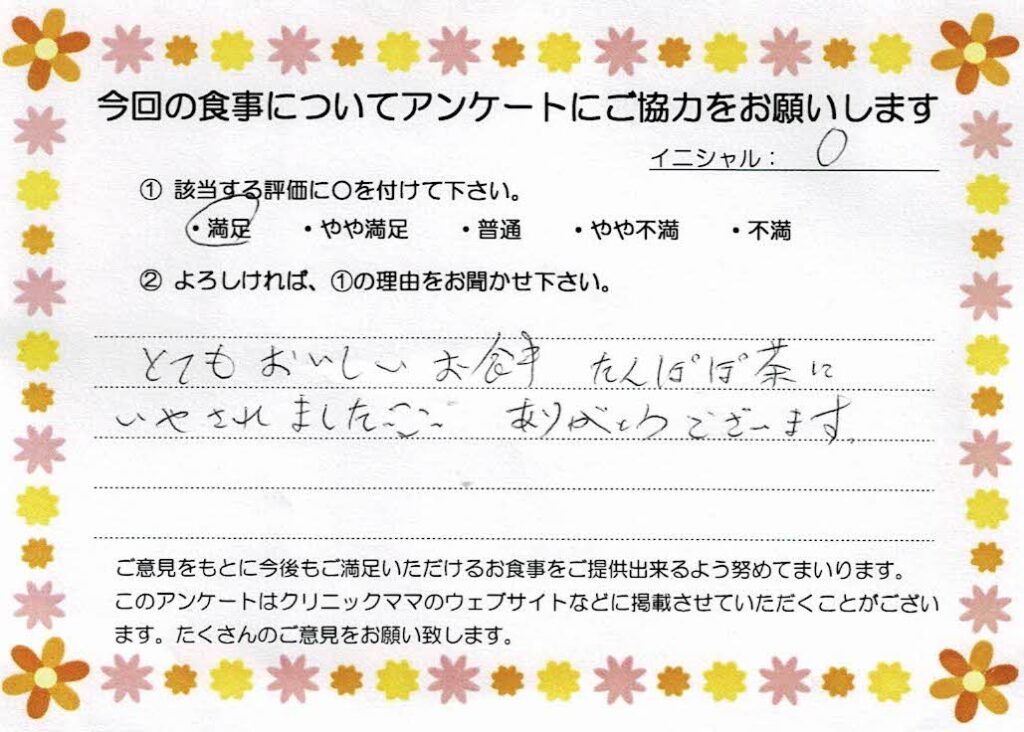 今回の食事についてアンケートにご協力をお願いします
イニシャル： O
① 該当する評価に〇を付けて下さい。
・満足 ・やや満足 ・普通 ・やや不満 ・不満
② よろしければ、①の理由をお聞かせ下さい。
とてもおいしいお食事 たんぽぽ茶に
いやされました ありがとうございます。
ご意見をもとに今後もご満足いただけるお食事をご提供出来るよう努めてまいります。
このアンケートはクリニックママのウェブサイトなどに掲載させていただくことがござい
ます。たくさんのご意見をお願い致します。